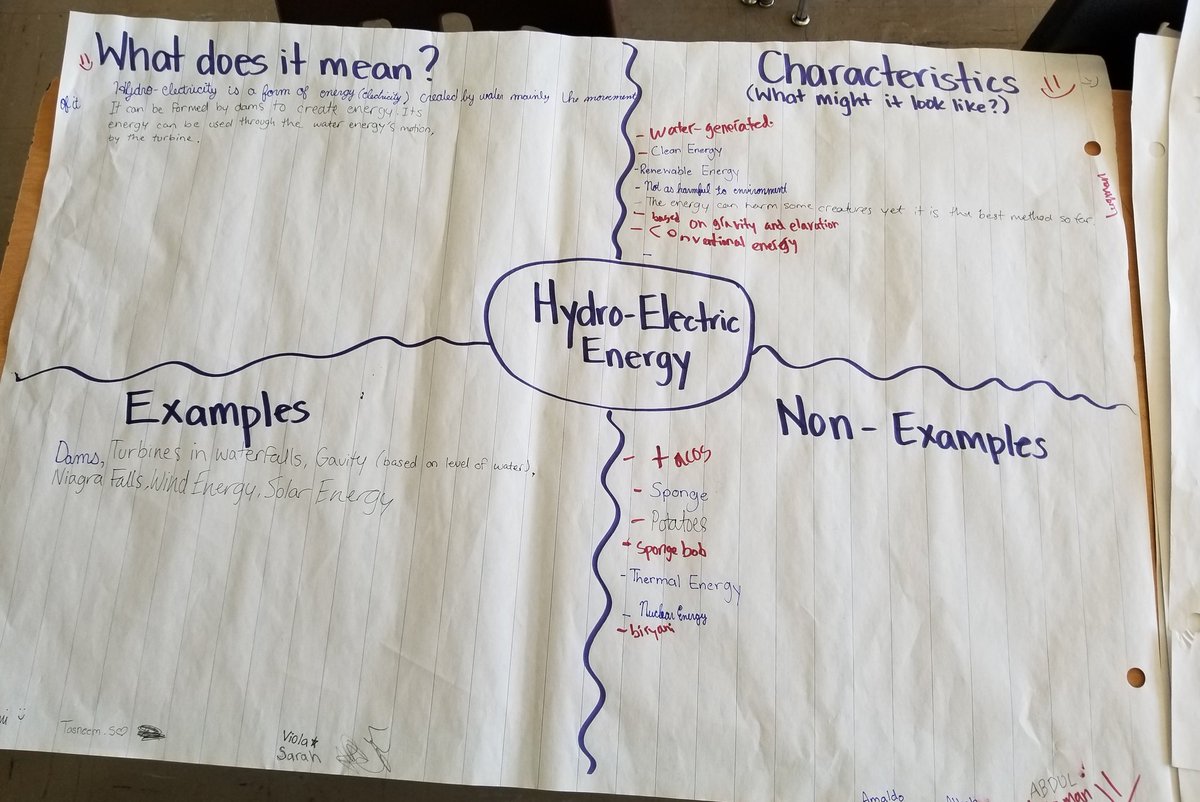 What does it mean?
Hydro-electricity is a form of energy (electricity) created by water mainly the movement
of it
It can be formed by dams to create energy. Its
energy can be used through the water energy's motion,
by the turbine.
Characteristics
(What might it look like?)
- Water-generated.
- Clean Energy
- Renewable Energy
- Not as harmful to environment
- The energy can harm some creatures yet it is the best method so far.
- based on gravity and elavation
- Conventional energy
-
Luqman!
Hydro-Electric
Energy
Examples
Dams, Turbines in waterfalls, Gavity (based on level of water),
Niagra Falls, Wind Energy, Solar Energy
Non-Examples
- tacos
- Sponge
- Potatoes
- Sponge bob
- Thermal Energy
- Nuclear Energy
- biryani
Tasneem.S
Viola
Sarah
Arnaldo
ABDUL